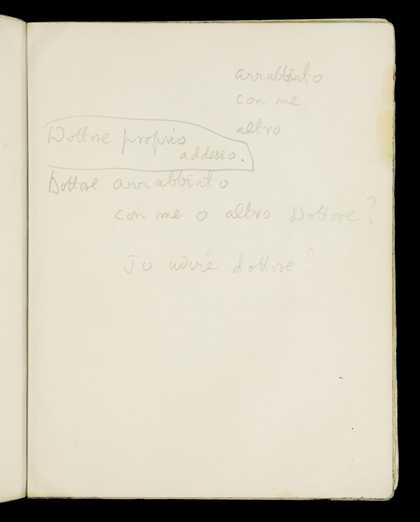 arrabbiato
con me
altro
Dottore proprio
addesso.
Dottore arrabbiato
con me o altro Dottore?
dottore?